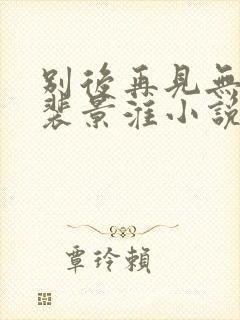 別後再見無
裴景淮小說
覃玲賴